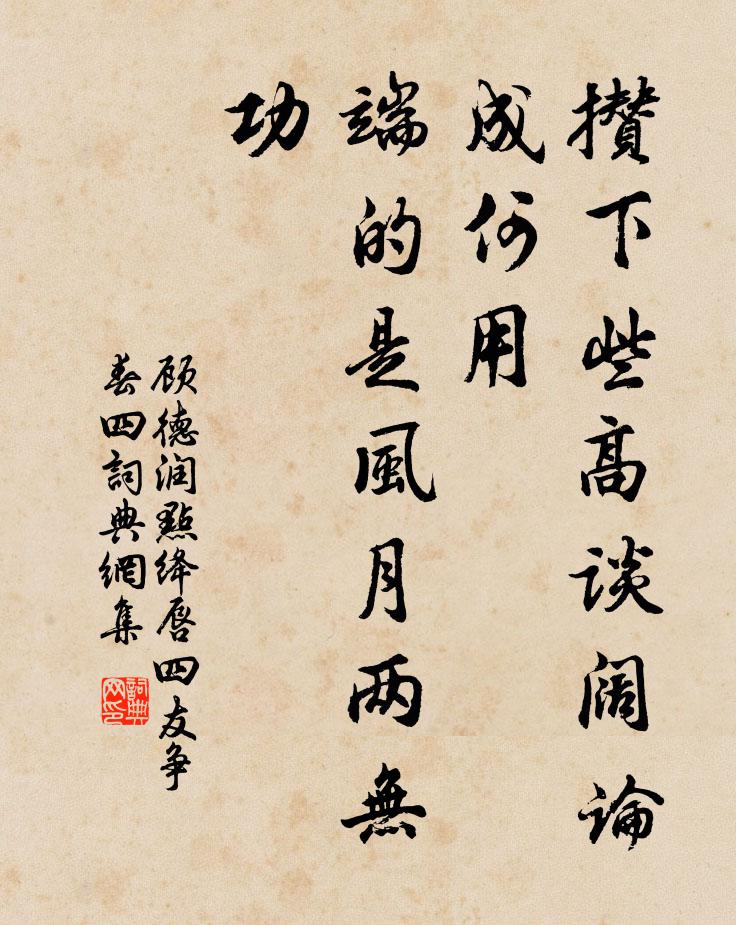 攢下些高談阔論
成何用
端的是風月两無
功
顾德润點绛唇四友争
春四詞典網集
詞典
网印